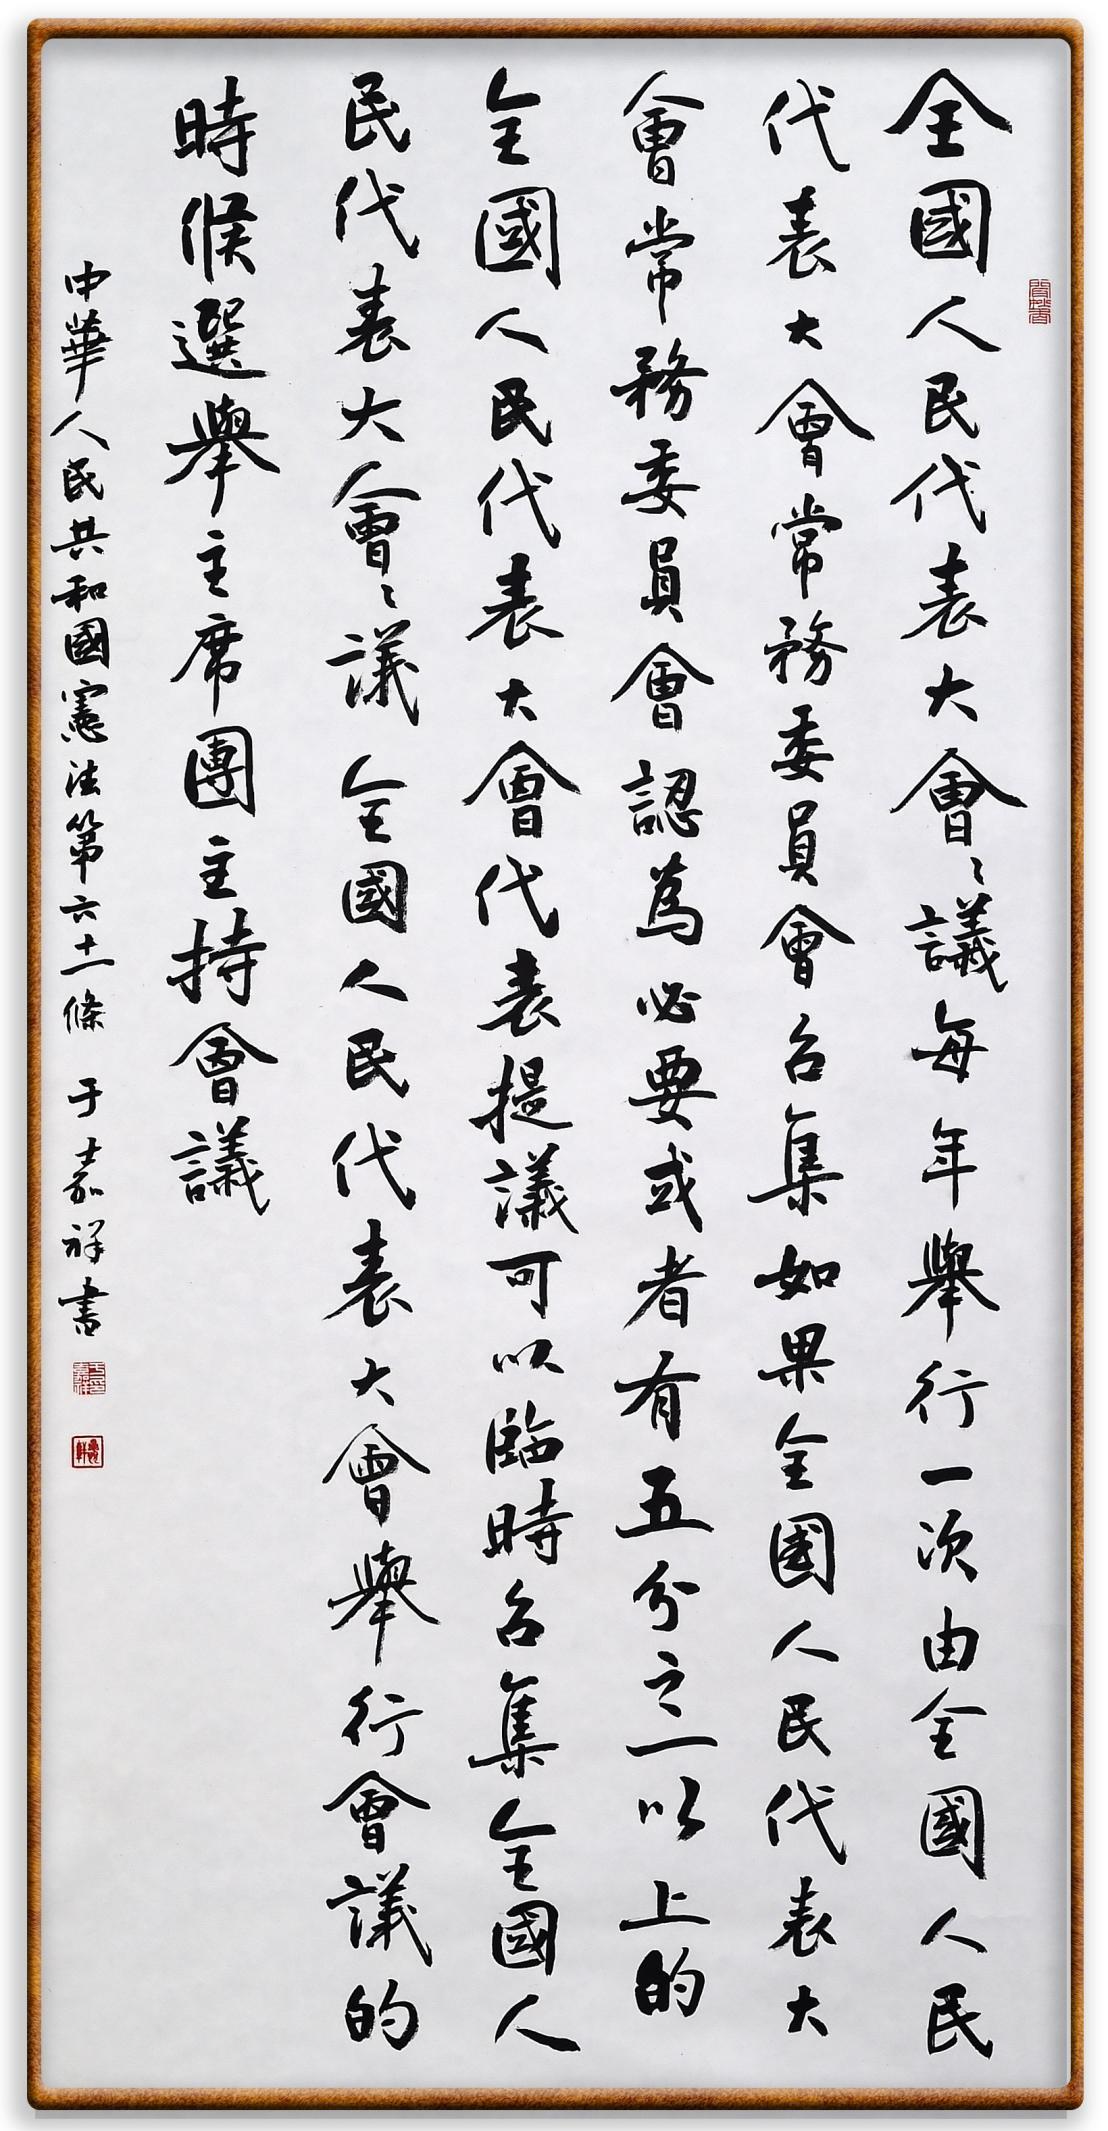 全國人民代表大會〻議每年舉行一次由全國人民
代表大會常務委員會召集如果全國人民代表大
會常務委員會認為必要或者有五分之一以上的
全國人民代表大會代表提議可以臨時召集全國人
民代表大會〻議全國人民代表大會舉行會議的
時候選舉主席團主持會議
中華人民共和國憲法第六十一條 于嘉祥書